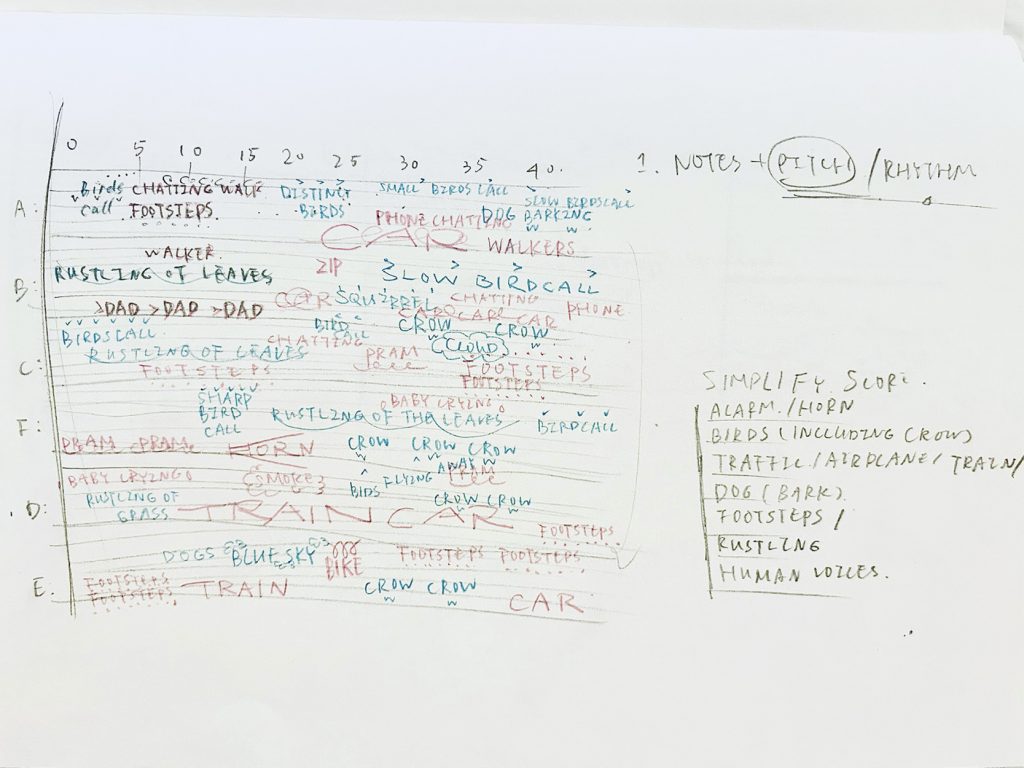 0 5 10 15 20 25 30 35 40.
1. NOTES + PITCH / RHYTHM
A: Birds CHATTING WALK DISTINCT SMALL BIRDS CALL SLOW BIRDSCALL
Call FOOTSTEPS. BIRDS PHONE CHATTING DOG BARKING
CAR WALKERS
WALKER.
B: RUSTLING OF LEAVES ZIP SLOW BIRDCALL
>DAD >DAD >DAD CAR SQUIRREL CHATTING PHONE
CAR CAR CAR
BIRDSCALL BIRD CALL CROW CROW
CHATTING
C: RUSTLING OF LEAVES PRAM CLOUD
FOOTSTEPS FOOTSTEPS
FOOTSTEPS
SHARP BABY CRYING
BIRD RUSTLING OF THE LEAVES BIRDCALL
F: CALL
PRAM PRAM HORN CROW CROW CROW
AWAY PRAM
BABY CRYING SMOKE BIDS FLYING
D: RUSTLING OF CROW CROW
GRASS TRAIN CAR
FOOTSTEPS
DOGS BLUE SKY BIKE FOOTSTEPS FOOTSTEPS
E. FOOTSTEPS TRAIN CROW CROW
FOOTSTEPS CAR
SIMPLIFY SCORE.
ALARM. / HORN
BIRDS (INCLUDING CROW)
TRAFFIC / AIRPLANE / TRAIN /
DOG (BARK).
FOOTSTEPS /
RUSTLING
HUMAN VOICES.